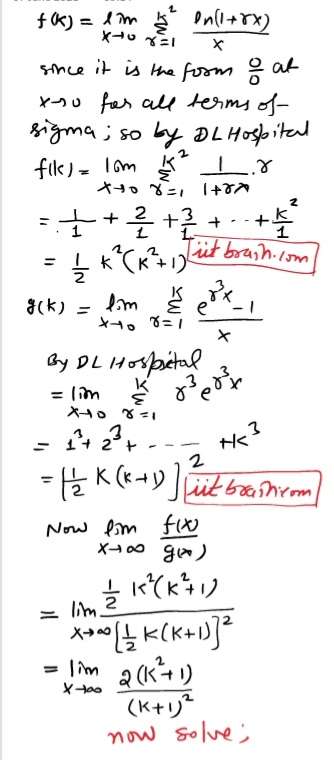 f(k) = lim_{x→0} Σ_{r=1}^{k²} ln(1+rx)/x
since it is the form 0/0 at
x→0 for all terms of
sigma ; so by DL Hospital
f(k) = lim_{x→0} Σ_{r=1}^{k²} 1/(1+rx) . r
= 1/1 + 2/1 + 3/1 + - - + k²/1
= 1/2 k²(k²+1) iit brain.com
g(k) = lim_{x→0} Σ_{r=1}^{k} (e^{r³x} - 1)/x
By DL Hospital
= lim_{x→0} Σ_{r=1}^{k} r³ e^{r³x}
= 1³ + 2³ + - - - - +k³
= [1/2 k(k+1)]² iit brain.com
Now lim_{x→∞} f(x)/g(x)
= lim_{x→∞} (1/2 k²(k²+1))/[1/2 k(k+1)]²
= lim_{x→∞} 2(k²+1)/(k+1)²
now solve ;